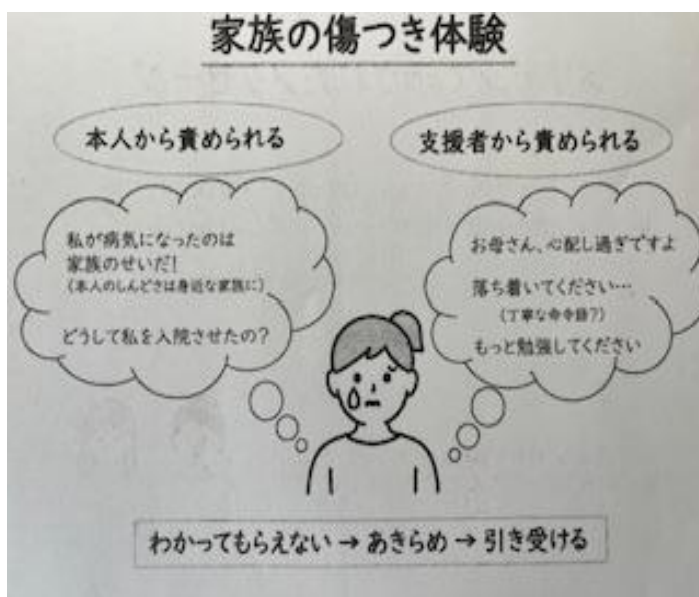 家族の傷つき体験
本人から責められる
支援者から責められる
私が病気になったのは
家族のせいだ！
（本人のしんどさは身近な家族に）
どうして私を入院させたの？
お母さん、心配し過ぎですよ
落ち着いてください…
（丁寧な命令語？）
もっと勉強してください
わかってもらえない → あきらめ → 引き受ける